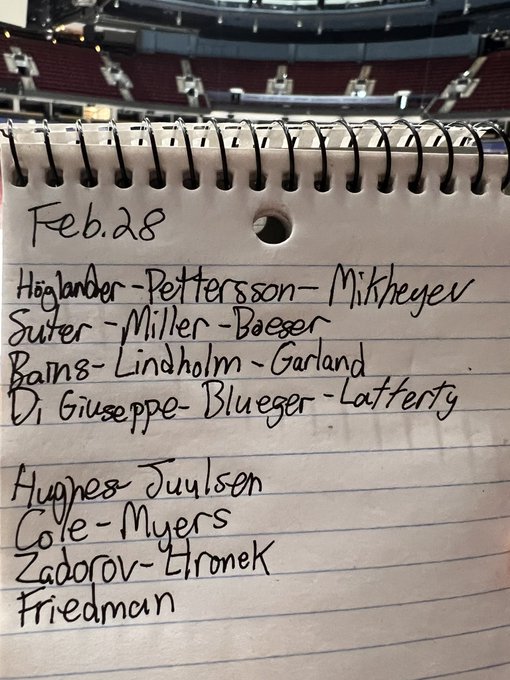 Feb. 28
Höglander - Pettersson - Mikheyev
Suter - Miller - Boeser
Bains - Lindholm - Garland
Di Giuseppe - Blueger - Lafferty
Hughes - Juulsen
Cole - Myers
Zadorov - Hronek
Friedman